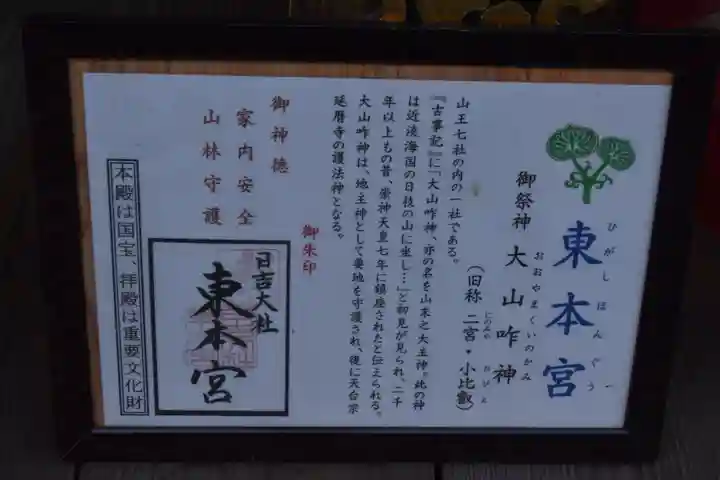 東本宮
ひがしほんぐう
御祭神 大山咋神
おおやまくいのかみ
(旧称 二宮・小比叡)
にのみや おびえ
山王七社の内の一社である。
『古事記』に「大山咋神、亦の名を山末之大主神。此の神
は近淡海国の日枝の山に坐し…」と御見が見られ、二千
年以上もの昔、崇神天皇七年に鎮座されたと伝えられる。
大山咋神は、地主神として要地を守護され、後に天台宗
延暦寺の護法神となる。
御神徳
家内安全
山林守護
御朱印
日吉大社
東本宮
本殿は国宝、拝殿は重要文化財